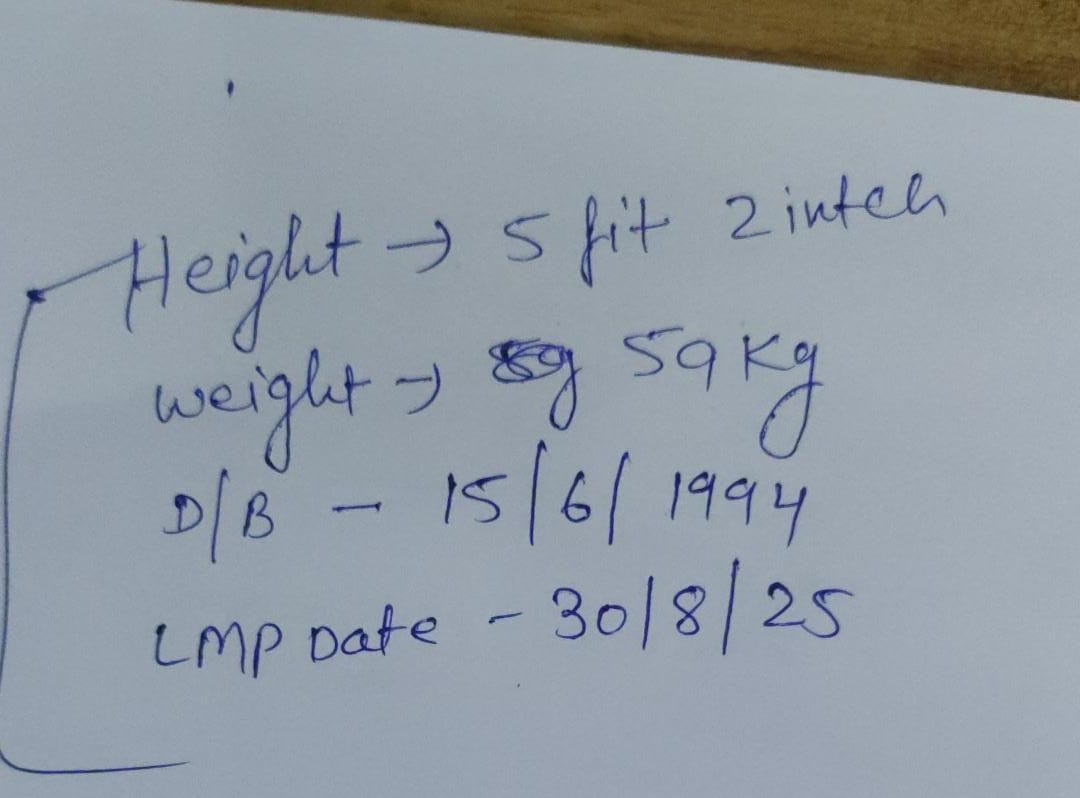 Height → 5 fit 2 intch
weight → 59 Kg
D/B - 15/6/1994
LMP Date - 30/8/25